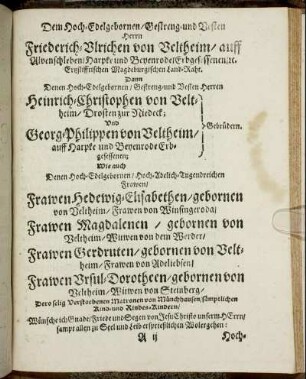 Dem Hoch-Edelgebornen/Gestreng-und Vesten
Herrn
Friederich-Ulrichen von Veltheim/ auff
Alvenschleben/Harpke und Beyenrode/Erbgesessenen/ıc.
Ertzstifftischen Magdeburgischen Land-Raht.
Dann
Denen Hoch-Edelgebornen/Gestreng-und Vesten Herren
Heinrich-Christophen von Velt-
heim/ Drosten zur Niedeck;
Und
Georg-Philippen von Veltheim/
auff Harpke und Beyenrode Erb-
gesessenen;
Gebrüdern.
Wie auch
Denen Hoch-Edelgebornen/Hoch-Adelich-Tugendreichen
Frawen/
Frawen Hedewig-Elisabethen/gebornen
von Veltheim/Frawen von Wintzingeroda/
Frawen Magdalenen / gebornen von
Veltheim/Witwen von dem Werder/
Frawen Gerdruten/gebornen von Velt-
heim/Frawen von Adelebsen/
Frawen Ursul-Dorotheen/gebornen von
Veltheim/ Witwen von Steinberg/
Dero selig Verstorbenen Matronen von Münchhausen sämptlichen
Kind- und Kindes-Kindern/
Wünsche ich Gnade/Friede und Segen von Jesu Christo unserm HErrn/
sampt allen zu Seel und Leib ersprießlichen Wolergehen:
A ij
Hoch-